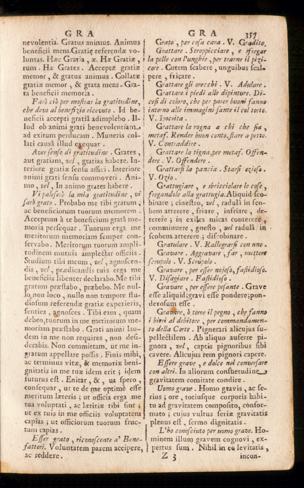 GRA
GRA
357
nevolentia. Gratus animus. Animus
beneficii mens. Gratiæ referendæ vo-
luntas. Hæc Gratia, æ. Hæ Gratiæ,
rum. Hæ Grates. Acceptæ gratiæ
memor, & gratus animus. Collatæ
gratiæ memor, & grata mens. Gra-
ta beneficii memoria.
Farà ciò per mostrar la gratitudine,
che deve al beneficio ricevuto. Id be-
neficii accepti gratiâ adimplebo. Il-
lud ob animi grati benevolentiam,
ad exitum perducam. Muneris col-
lati causâ illud exequar.
Aver senso di gratitudine. Grates,
aut gratiam, vel, gratias habere. In-
teriore gratiæ sensu affici. Interiore
animi grati sensu commoveri. Ani-
mo, vel, In animo grates habere.
Vi paleserò la mia gratitudine, e
sarò grato. Probabo me tibi gratum,
ac beneficiorum tuorum memorem.
Acceptum à te beneficium gratâ me-
moriâ persequar. Tuorum erga me
meritorum memoriam semper con-
servabo. Meritorum tuorum ampli-
tudinem mutuis amplectar officiis.
Studium tibi meum, vel, agnoscen-
dis, vel, prædicandis tuis erga me
beneficiis libenter declarabo. Me tibi
gratum præstabo, præbebo. Me nul-
lo non loco, nullo non tempore stu-
diosum referendæ gratiæ experieris,
senties, agnosces. Tibi eum, quam
debeo, tuorum in me meritorum me-
moriam præstabo. Grati animi lau-
dem in me non requires, non desi-
derabis. Non committam, ut me in-
gratum appellare possis. Finis mihi,
ac terminus vitæ, & memoriæ beni-
gnitatis in me tuæ idem erit; idem
futurus est. Enitar, &, ua spero,
consequar, ut te de me optimè esse
meritum læteris; ut officii erga me
tua voluptati, ac lætitiæ tibi sint;
ut ex tuis in me officiis voluptatem
capias; ut officiorum tuorum fruc-
tum capias.
Esser grato, riconoscente a' Bene-
fattori. Voluntatem parem accipere,
ac reddere.
Grato, per cosa cara. V. Gradito.
Grattare. Stropicciare, e sfregar
la pelle con l'unghie, per trarne il pizi-
core. Cutem scabere, unguibus scal-
pere, fricare.
Grattare gli orecchi. V. Adulare.
Grattare i piedi alle dipinture. Di-
cesi di coloro, che per parer buoni stanno
intorno alle immagini sante il cul torto.
V. Ipocrita.
Grattare la rogna a chi che sia,
metaf. Render buon conto, stare a petto.
V. Contraddire.
Grattare la tigna, per metaf. Offen-
dere. V. Offendere.
Grattarsi la pancia. Starsi ozioso.
V. Ozio.
Grattugiare, e sbricciolare le cose,
fregandole alla grattugia. Aliquid sco-
binare; cinestro, vel, radulâ in scu-
bem atterere, friare, infriare, de-
terere; in exiles micas conterere,
comminuere, gnosto, vel, radulâ in
scobem atterere; disfobinare.
Gratulare. V. Rallegrarsi con uno.
Gravare. Aggravare, far, mettere
scrupulo. V. Scrupulo.
Gravare, per esser molesto, fastidioso.
V. Disagiare. Fastidioso.
Gravare, per essere pesante. Grave
esse aliquid; gravi esse pondere; pon-
derosum esse.
Gravare, è torre il pegno, che fanno
i birri al debitore, per commandamen-
to della Corte. Pignerari alicujus su-
pellectilem. Ab aliquo auferre pi-
gnora, vel, captis pignoribus sibi
cavere. Alicujus rem pignori capere.
Essere grave, e dolce nel conversare
con altri. In aliorum consuetudine
gravitatem comitate condire.
Uomo grave. Homo gravis, ac se-
rius; ore, totiusque corporis habi-
tu ad gravitatem composito, confor-
mato; cujus vultus seriæ gravitatis
plenus est, sermo dignitatis.
L'ho conosciuto per uomo grave. Ho-
minem illum gravem cognovi, ex-
pertus sum. Nihil in eo levitatis,
Z 3
incon-